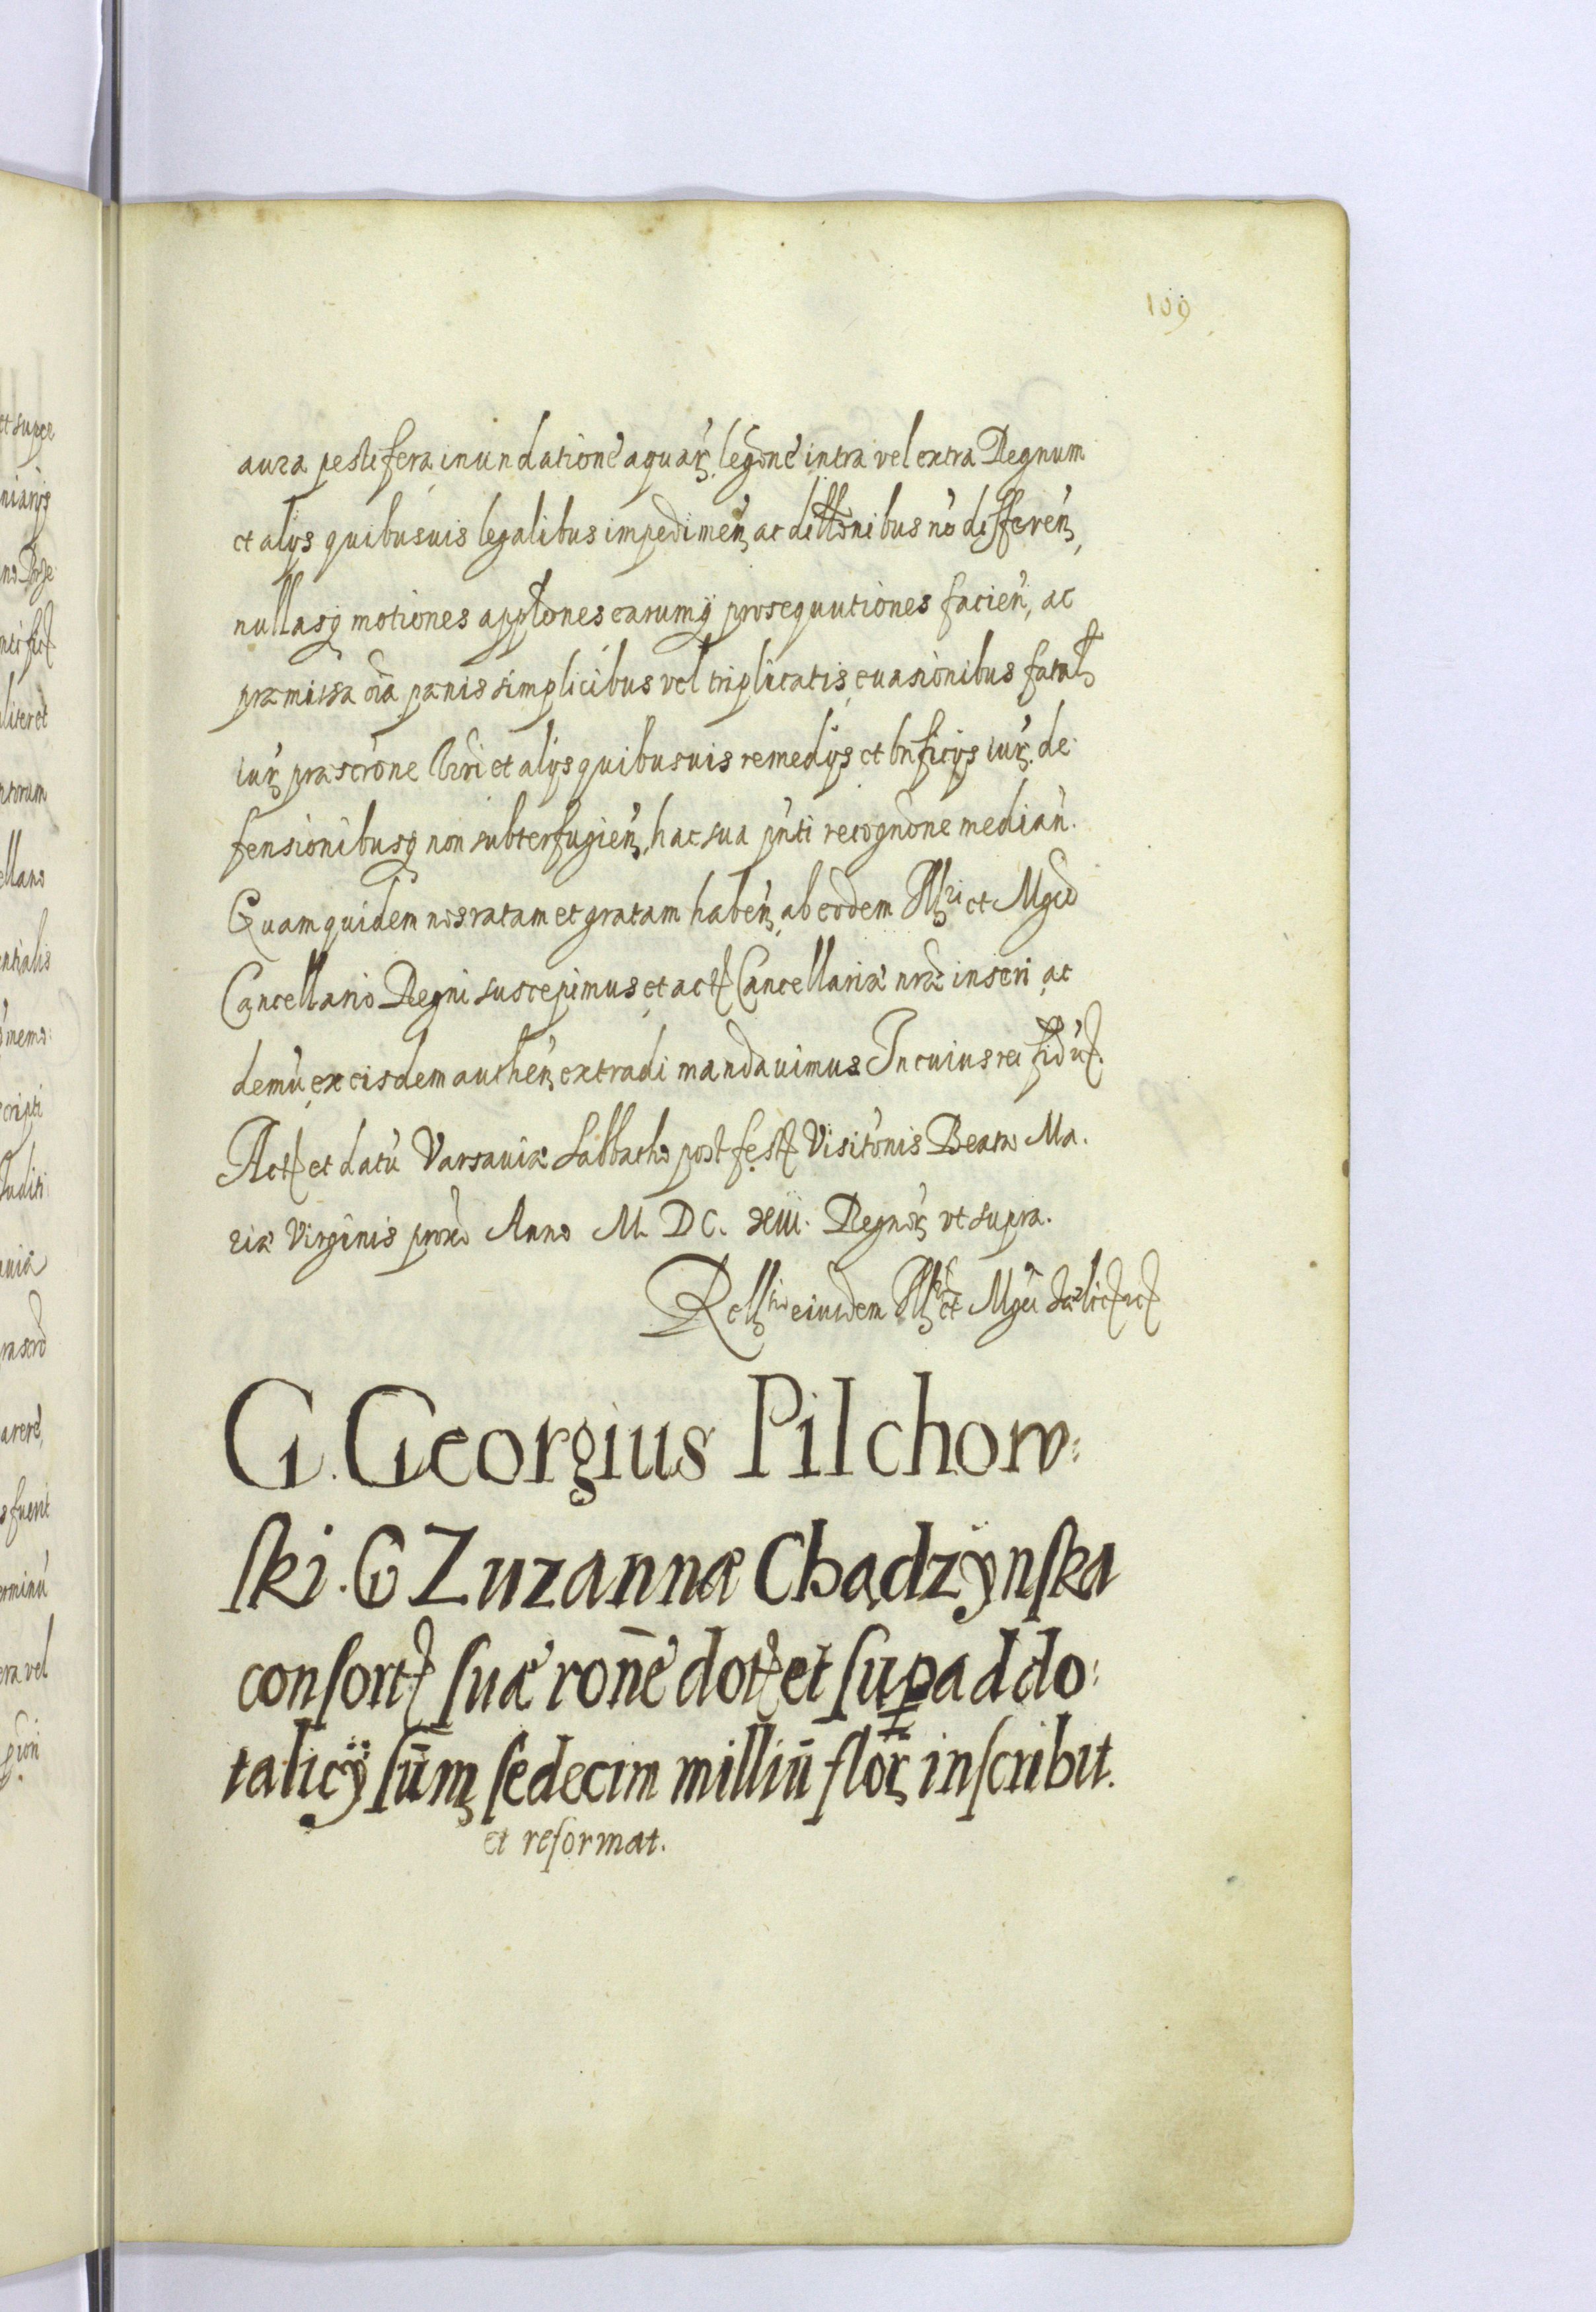 109
aura pestifera, inundatione aquar, legone intra vel extra Regnum
et alys quibusuis legalibus impedimen, ac dillonibus nō differen,
nullasq motiones appłones earumq prosequutiones facien, ac
præmissa oīa pænis simplicibus vel triplicatis, euasionibus fatal
iur, præscrone terri et alys quibusuis remedys et bnficys iur, de
fensionibusq non subterfugien, hac sua pnti recognone median.
Quam quidem nos ratam et gratam haben, ab eodem Illri et Mgco
Cancellario Regni suscepimus, et act Cancellariæ nræ inseri, ac
demū ex eisdem authen, extradi mandauimus In cuius rei fid
Act et datū Varsauiæ Sabbatho post fest Visitonis Beatæ Ma.
riæ Virginis prox Anno M. DC. XVIII. Regnor vt supra.
Rell eiusdem Illr et Mgci
G. Georgius Pilchow:
ski. G Zuzannæ Chądzynska
consort suæ ronē dot et supaddo:
talicÿ sūm sedecim milliū flor inscribit.
et reformat.
et supe
ellano
cripti
auia
s fuerit
erminū
era vel